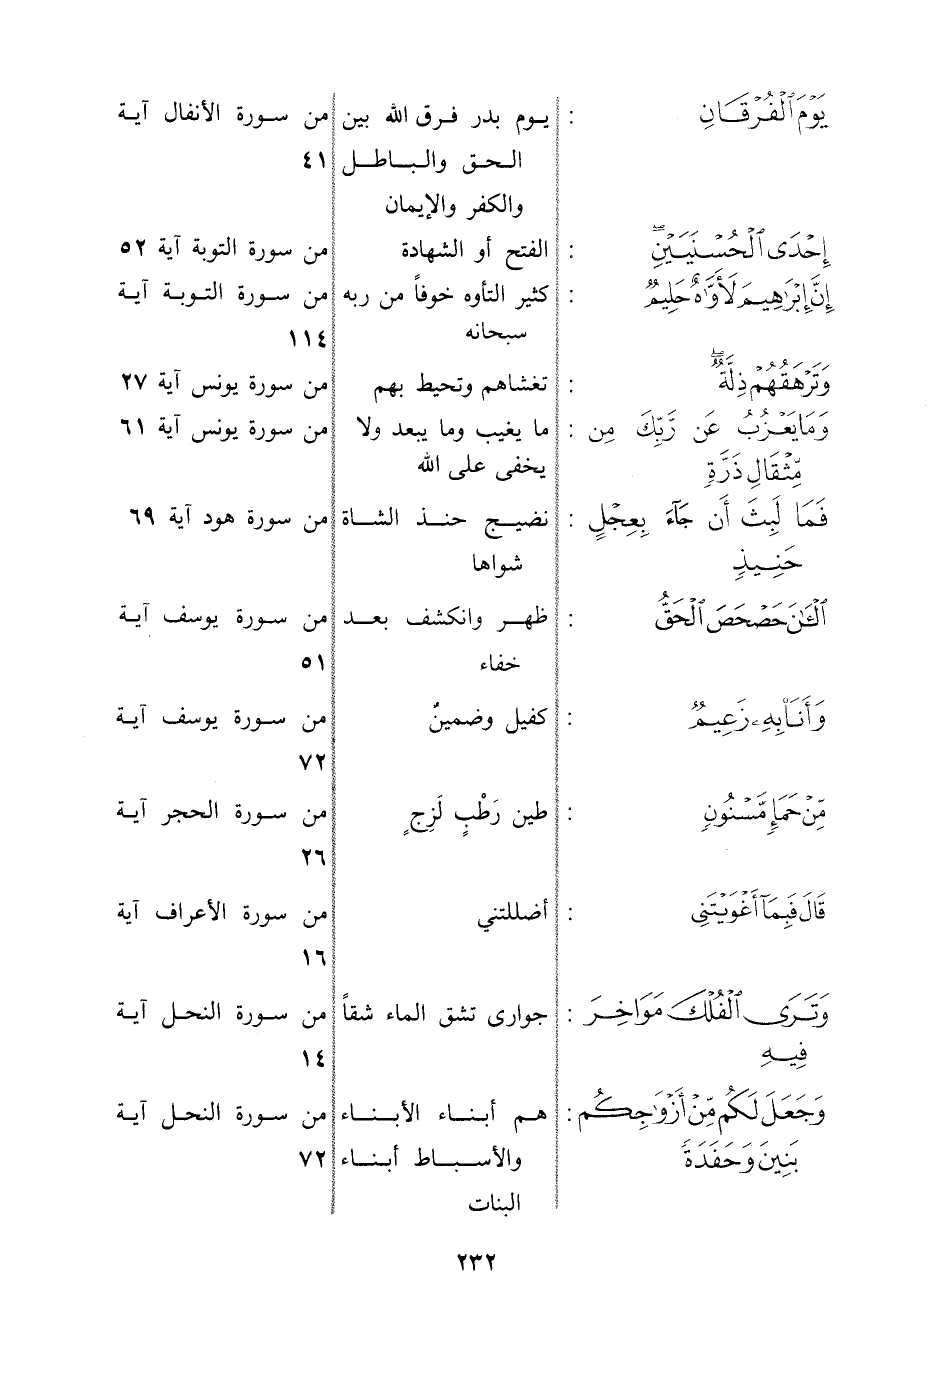 يَوْمَ ٱلْفُرْقَانِ : يوم بدر فرق الله بين من سورة الأنفال آية
الحق والباطل ٤١
والكفر والإيمان
إِحْدَى ٱلْحُسْنَيَيْنِ ۖ : الفتح أو الشهادة من سورة التوبة آية ٥٢
إِنَّ إِبْرَٰهِيمَ لَأَوَّٰهٌ حَلِيمٌ : كثير التأوه خوفاً من ربه من سورة التوبة آية
سبحانه ١١٤
وَتَرْهَقُهُمْ ذِلَّةٌ ۖ : تغشاهم وتحيط بهم من سورة يونس آية ٢٧
وَمَا يَعْزُبُ عَن رَّبِّكَ مِن : ما يغيب وما يبعد ولا من سورة يونس آية ٦١
مِّثْقَالِ ذَرَّةٍ يخفى على الله
فَمَا لَبِثَ أَن جَآءَ بِعِجْلٍ : نضيج حنذ الشاة من سورة هود آية ٦٩
حَنِيذٍ شواها
ٱلْـَٰٔنَ حَصْحَصَ ٱلْحَقُّ : ظهر وانكشف بعد من سورة يوسف آية
خفاء ٥١
وَأَنَا۠ بِهِۦ زَعِيمٌ : كفيل وضمينٌ من سورة يوسف آية
٧٢
مِّنْ حَمَإٍ مَّسْنُونٍ : طين رَطْبٍ لَزِجٍ من سورة الحجر آية
٢٦
قَالَ فَبِمَآ أَغْوَيْتَنِى : أضللتني من سورة الأعراف آية
١٦
وَتَرَى ٱلْفُلْكَ مَوَاخِرَ : جوارى تشق الماء شقاً من سورة النحل آية
فِيهِ ١٤
وَجَعَلَ لَكُم مِّنْ أَزْوَٰجِكُم : هم أبناء الأبناء من سورة النحل آية
بَنِينَ وَحَفَدَةً والأسباط أبناء ٧٢
البنات
٢٣٢